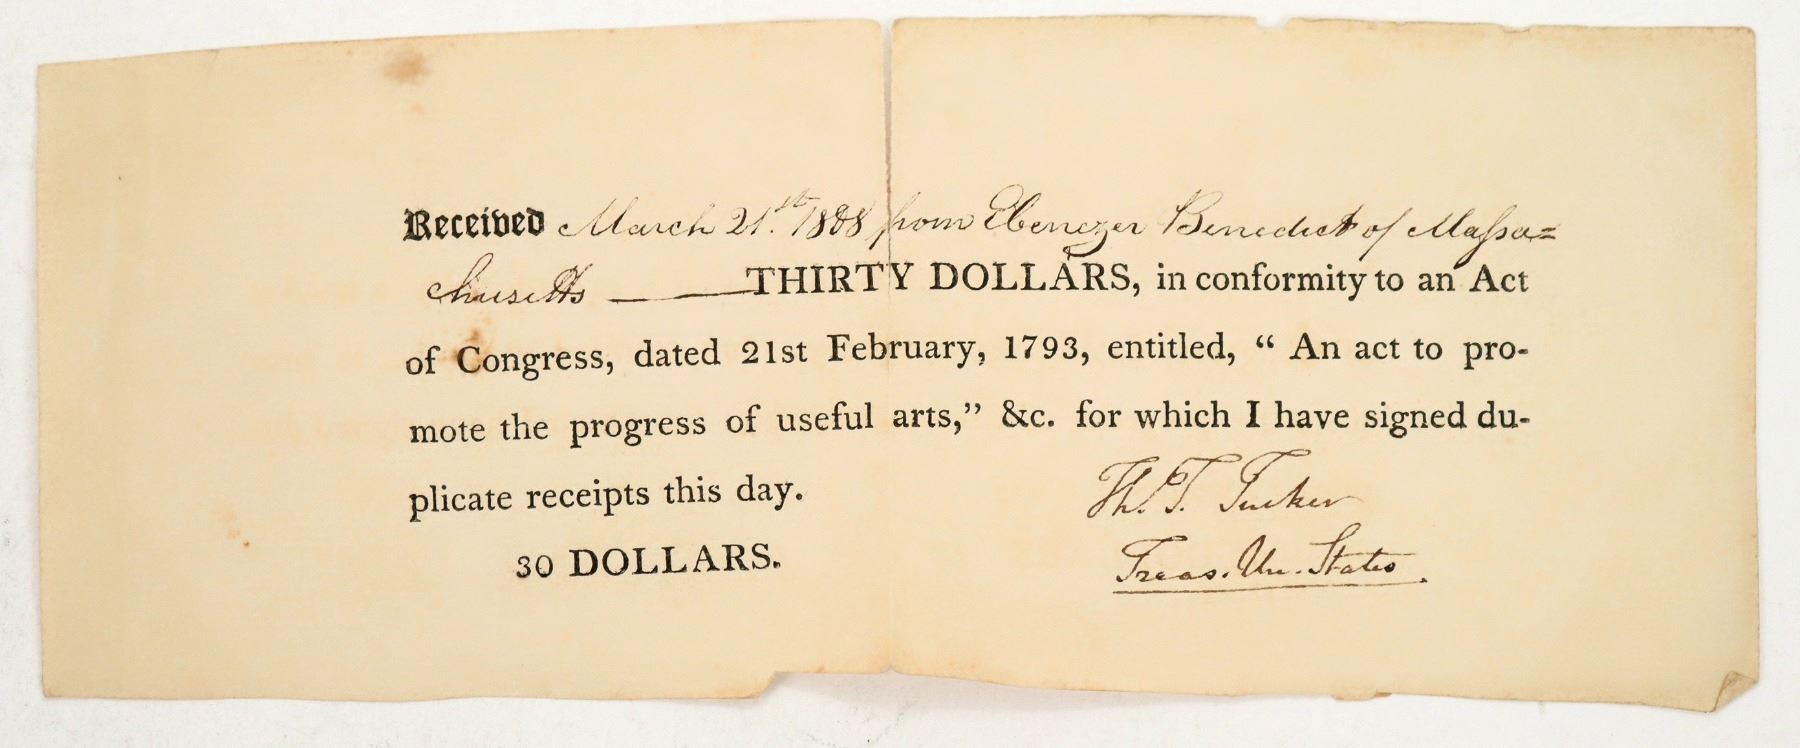 Received March 21.st 1808 from Ebenezer Benedict of Massa=
chusetts ——— THIRTY DOLLARS, in conformity to an Act
of Congress, dated 21st February, 1793, entitled, “ An act to pro-
mote the progress of useful arts,” &c. for which I have signed du-
plicate receipts this day.
Th. T. Tucker
30 DOLLARS.
Treas. Un. States.